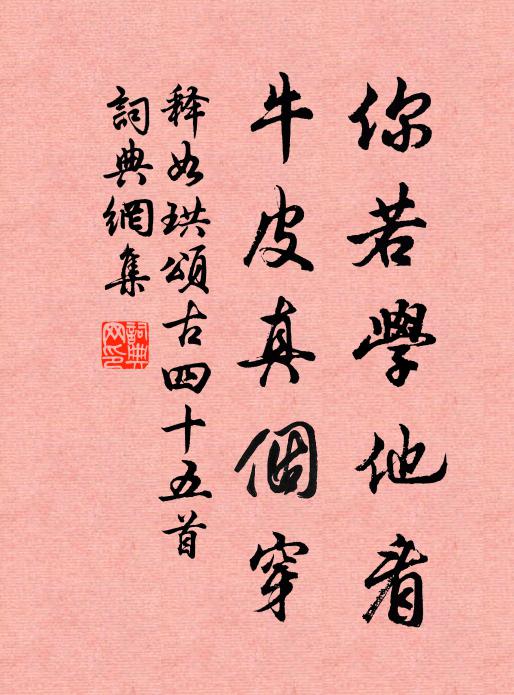 你若學他者
牛皮真個穿
释如珙頌古四十五首
詞典網集
詞典网印